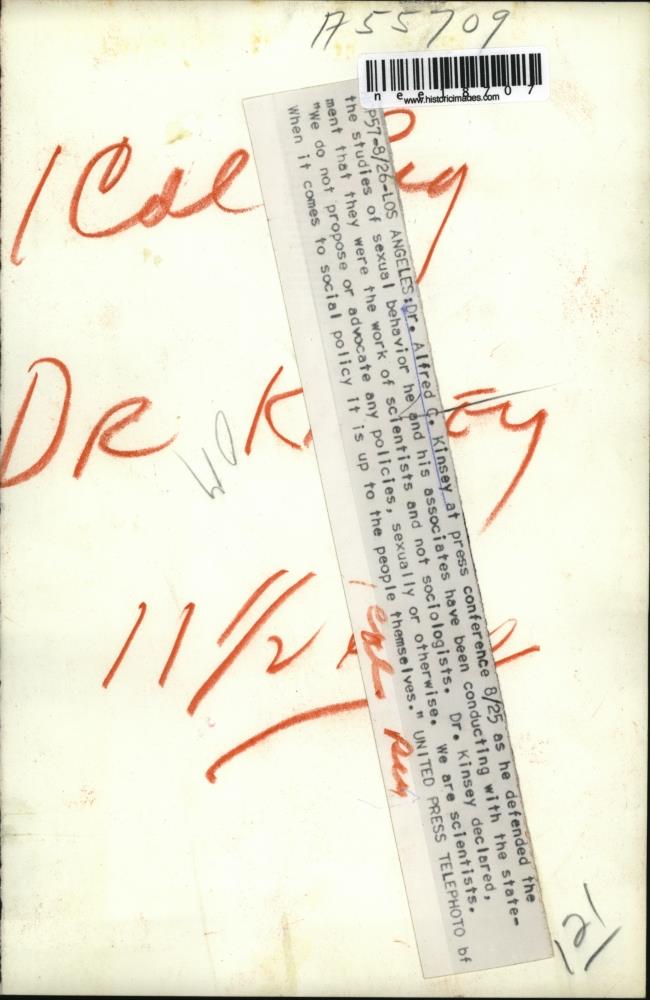 A55709
nee18707
www.historicimages.com
1 Col
DR K EY
11 1/2
P57-8/26-LOS ANGELES:Dr. Alfred C. Kinsey at press conference 8/25 as he defended the
the studies of sexual behavior he and his associates have been conducting with the state-
ment that they were the work of scientists and not sociologists. Dr. Kinsey declared,
"We do not propose or advocate any policies, sexually or otherwise. We are scientists.
When it comes to social policy it is up to the people themselves." UNITED PRESS TELEPHOTO bf
121